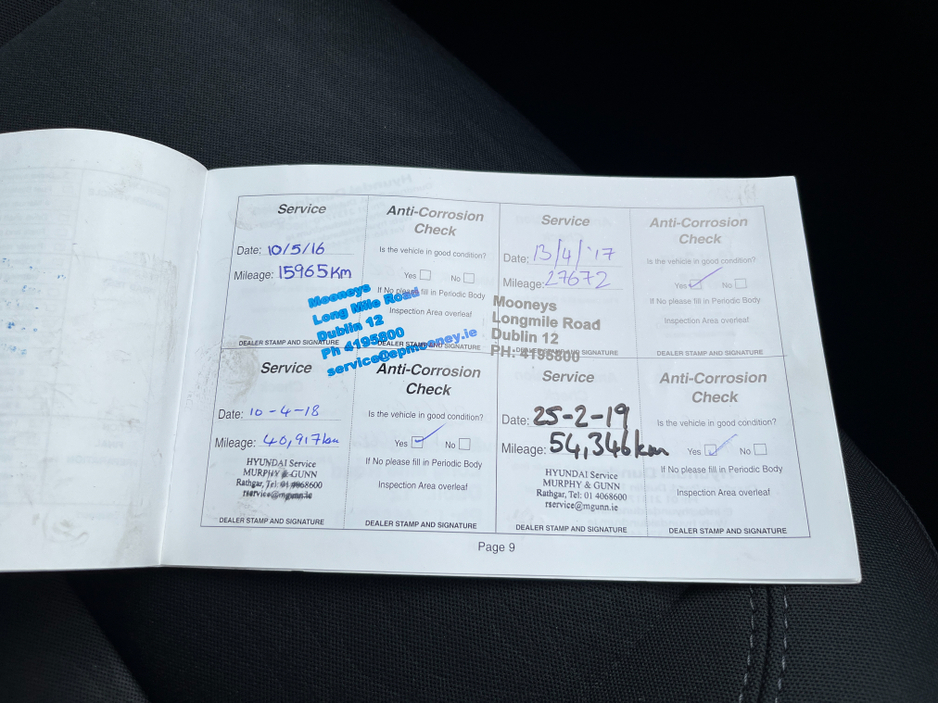 Service
Date: 10/5/16
Mileage: 15965Km
Mooneys
Long Mile Road
Dublin 12
Ph 4195800
service@epmooney.ie
DEALER STAMP AND SIGNATURE
Anti-Corrosion
Check
Is the vehicle in good condition?
Yes No
If No please fill in Periodic Body
Inspection Area overleaf
DEALER STAMP AND SIGNATURE
Service
Date: 13/4/'17
Mileage: 27672
Mooneys
Longmile Road
Dublin 12
PH: 4195800
DEALER STAMP AND SIGNATURE
Anti-Corrosion
Check
Is the vehicle in good condition?
Yes No
If No please fill in Periodic Body
Inspection Area overleaf
DEALER STAMP AND SIGNATURE
Service
Date: 10-4-18
Mileage: 40,917km
HYUNDAI Service
MURPHY & GUNN
Rathgar, Tel: 01 4068600
rservice@mgunn.ie
DEALER STAMP AND SIGNATURE
Anti-Corrosion
Check
Is the vehicle in good condition?
Yes No
If No please fill in Periodic Body
Inspection Area overleaf
DEALER STAMP AND SIGNATURE
Service
Date: 25-2-19
Mileage: 54,346km
HYUNDAI Service
MURPHY & GUNN
Rathgar, Tel: 01 4068600
rservice@mgunn.ie
DEALER STAMP AND SIGNATURE
Anti-Corrosion
Check
Is the vehicle in good condition?
Yes No
If No please fill in Periodic Body
Inspection Area overleaf
DEALER STAMP AND SIGNATURE
Page 9